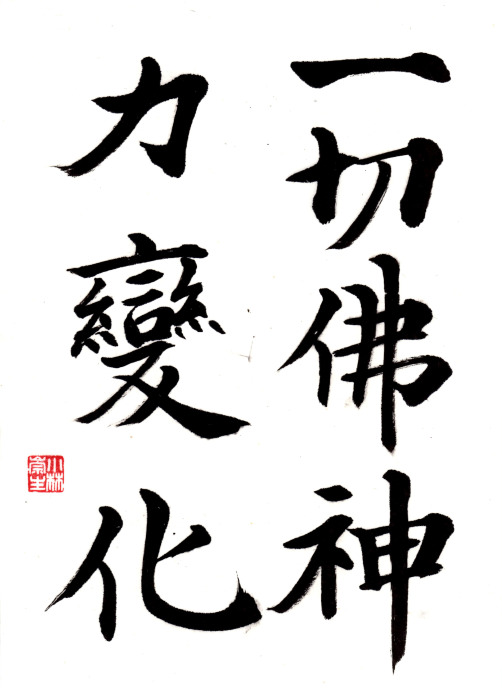 一切佛神
力變化
小林
崇生